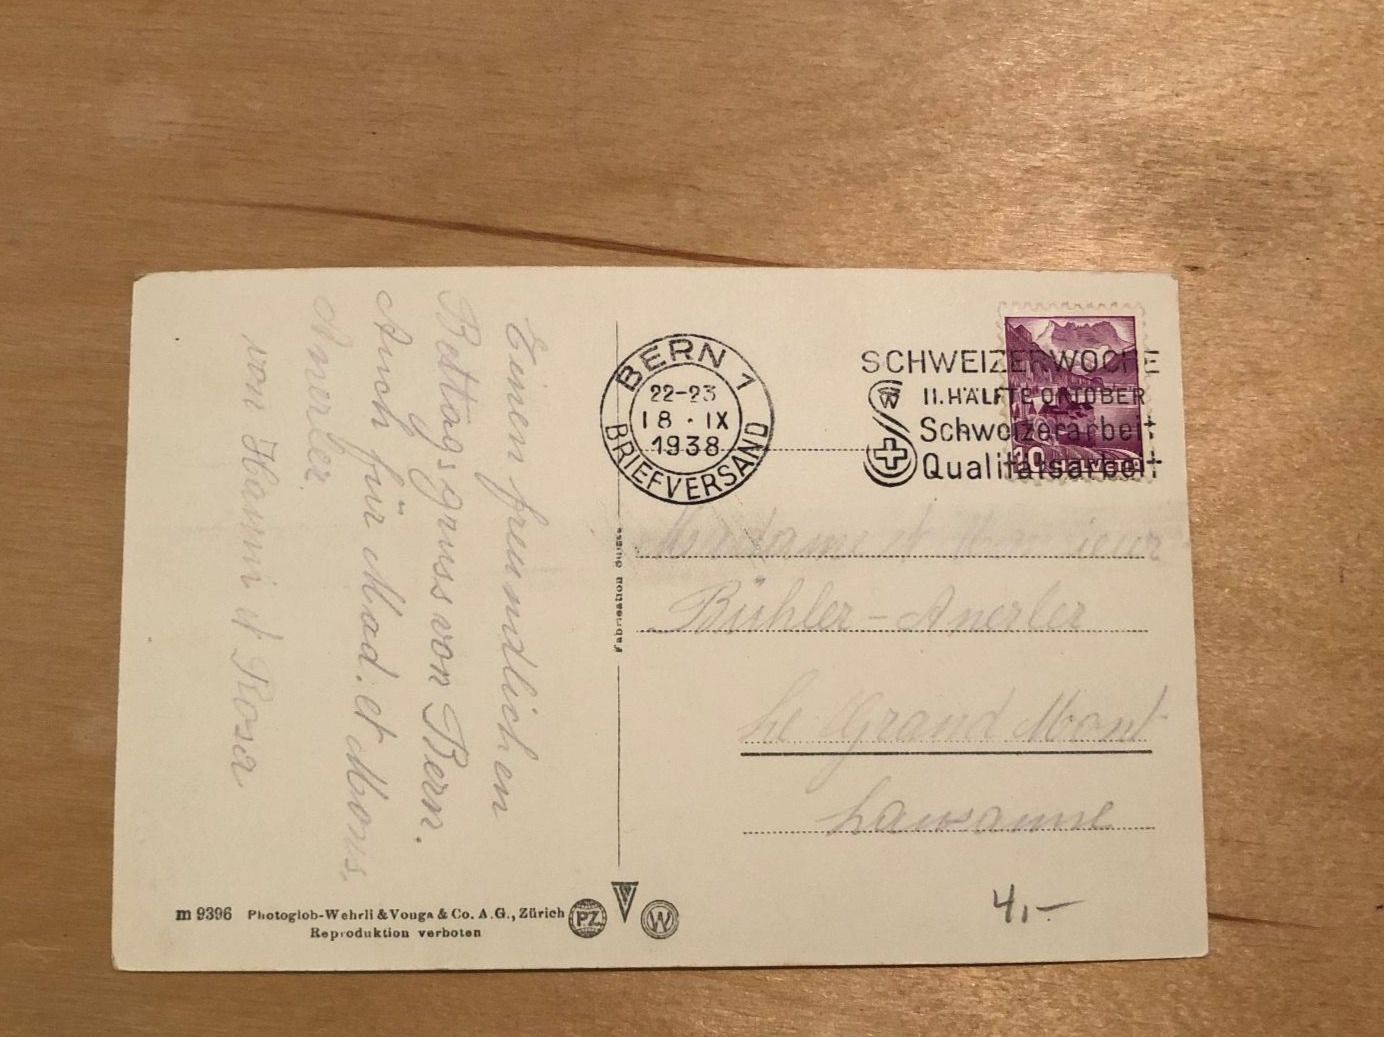 Einen freundlichen
Bettagsgruss von Bern.
Auch für Mad. et Mons.
Anerler
von Hanni et Rosa
BERN 1
22-23
18 · IX
1938
BRIEFVERSAND
SCHWEIZERWOCHE
II. HÄLFTE OKTOBER
Schweizerarbeit
Qualitätsarbeit
W
Fabrication Suisse
Madame et Monsieur
Bühler - Anerler
Le Grand Mont
Lausanne
4,–
m 9396 Photoglob-Wehrli & Vouga & Co. A.G., Zürich
Reproduktion verboten
PZ
V
W